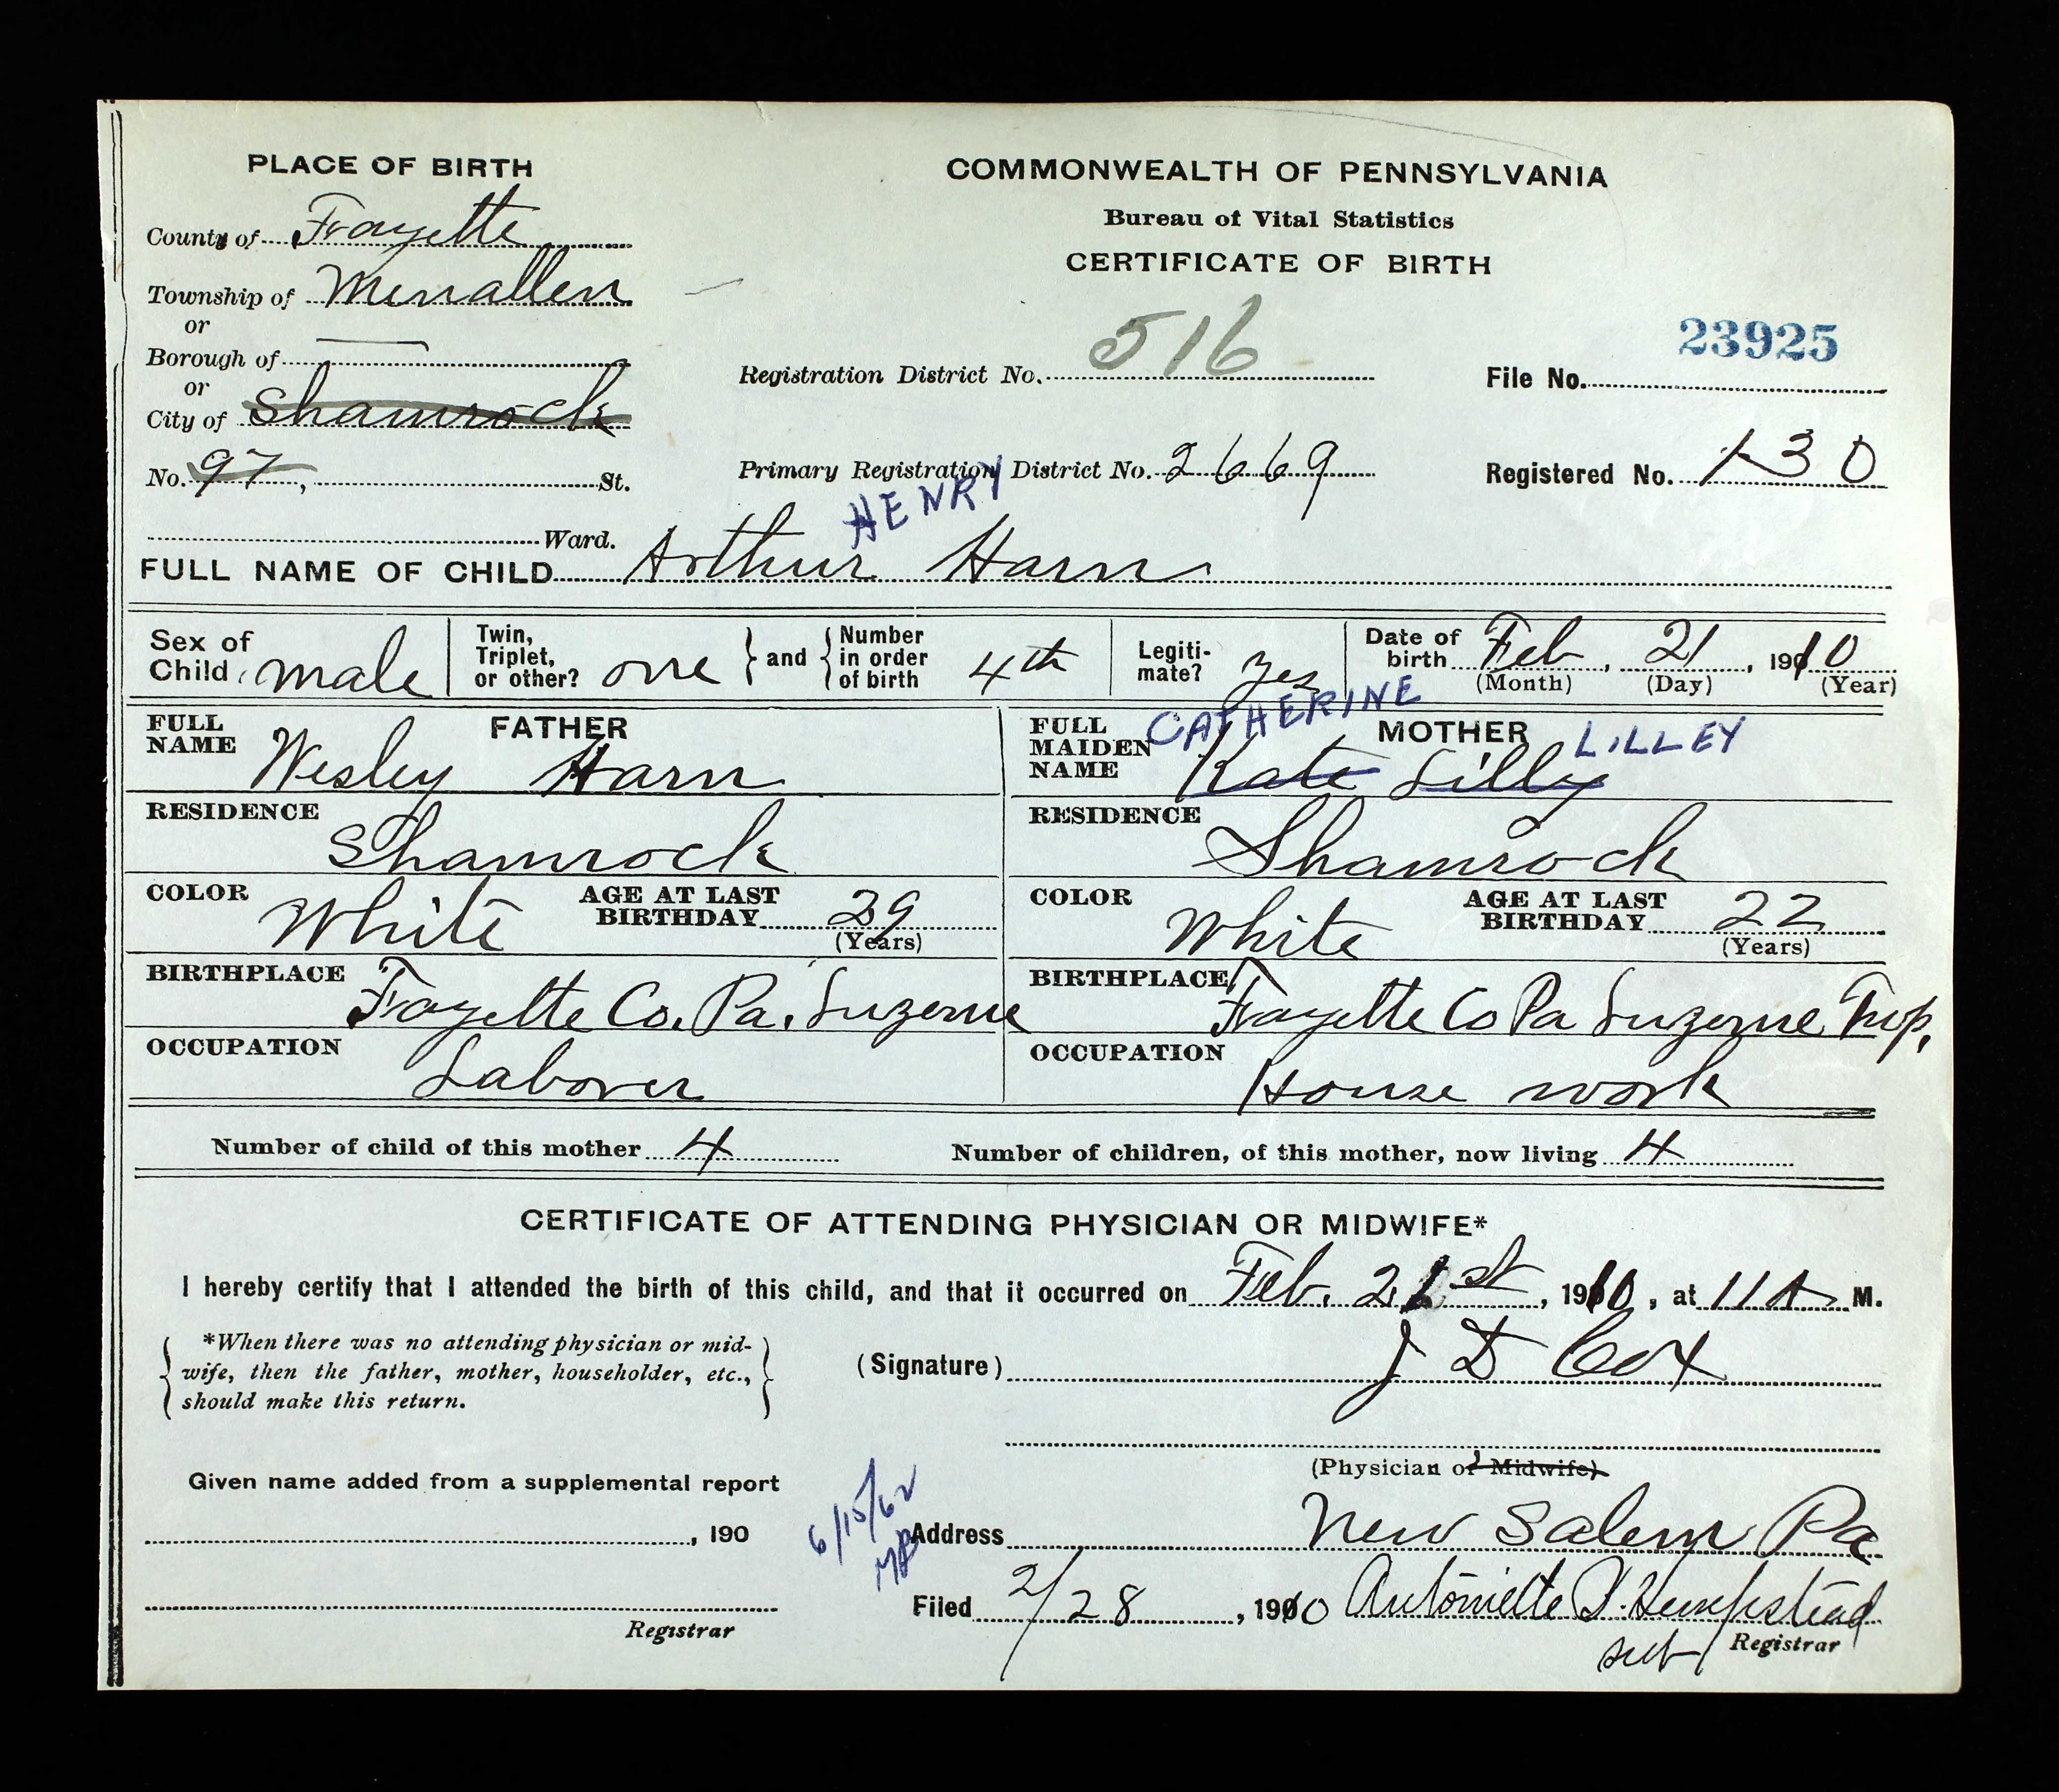 PLACE OF BIRTH
COMMONWEALTH OF PENNSYLVANIA
Bureau of Vital Statistics
CERTIFICATE OF BIRTH
County of Fayette
Township of Menallen
or
Borough of —
or
City of Shamrock
No. 97, St.
Ward.
Registration District No. 516
23925
File No.
Primary Registration District No. 2669
Registered No. 130
HENRY
FULL NAME OF CHILD Arthur Harn
Sex of Child male
Twin, Triplet, or other? one } and { Number in order of birth 4th
Legiti-mate? yes
Date of birth Feb, 21, 1910
(Month) (Day) (Year)
FATHER
FULL NAME Wesley Harn
RESIDENCE Shamrock
COLOR White AGE AT LAST BIRTHDAY 29
(Years)
BIRTHPLACE Fayette Co. Pa. Luzerne
OCCUPATION Laborer
MOTHER
CATHERINE LILLEY
FULL MAIDEN NAME Kate Lilly
RESIDENCE Shamrock
COLOR White AGE AT LAST BIRTHDAY 22
(Years)
BIRTHPLACE Fayette Co Pa Luzerne Twp.
OCCUPATION House work
Number of child of this mother 4 Number of children, of this mother, now living 4
CERTIFICATE OF ATTENDING PHYSICIAN OR MIDWIFE*
I hereby certify that I attended the birth of this child, and that it occurred on Feb. 21st, 1910, at 11 A M.
*When there was no attending physician or mid-
wife, then the father, mother, householder, etc.,
should make this return.
(Signature) J D Cox
(Physician or Midwife)
Given name added from a supplemental report
, 190
Registrar
6/15/62
Address New Salem Pa
Filed 2/28, 1910 Antoniette Hempstead
sub Registrar